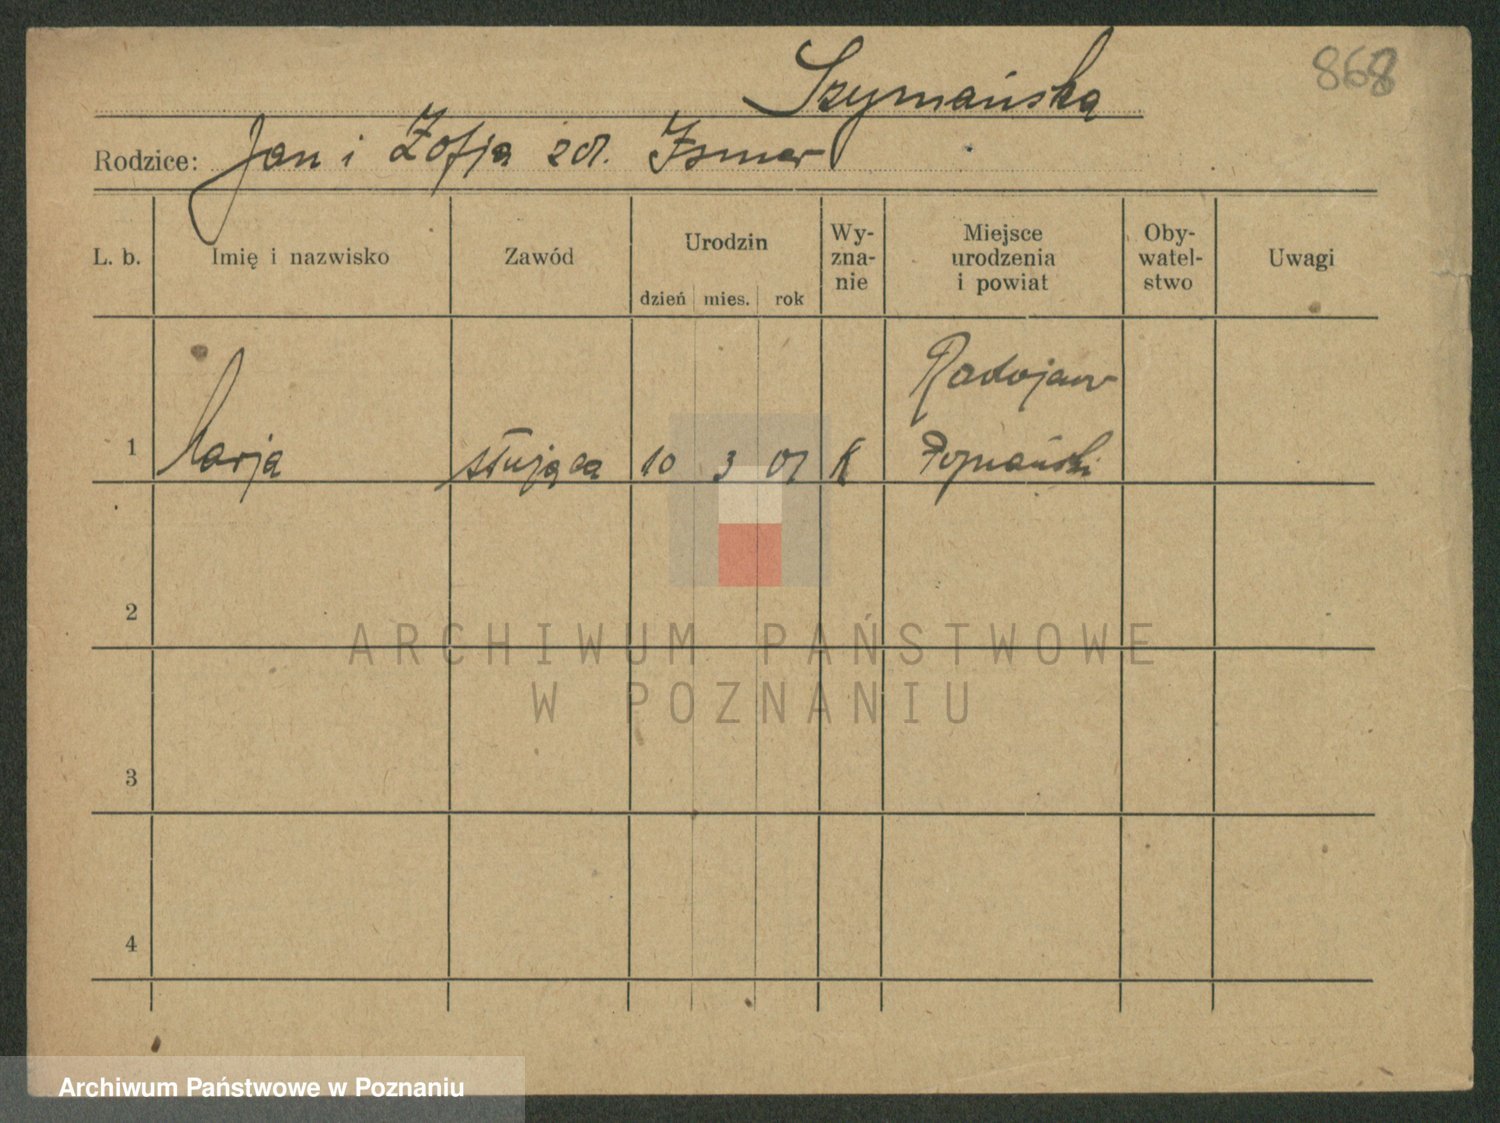 868
Szymańska
Rodzice: Jan i Zofja zd. Ismer
L. b. Imię i nazwisko Zawód Urodzin dzień mies. rok Wy-
zna-
nie Miejsce
urodzenia
i powiat Oby-
watel-
stwo Uwagi
Radojewo
1 Marja służąca 10 3 01 K Poznański
2
3
4
ARCHIWUM PAŃSTWOWE
W POZNANIU
Archiwum Państwowe w Poznaniu